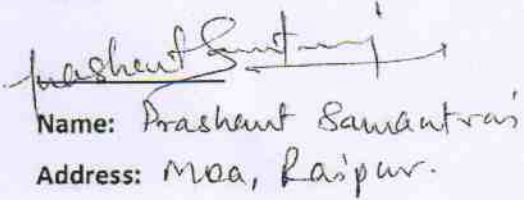 Prashant Samantrai
Name: Prashant Samantrai
Address: Moa, Raipur.